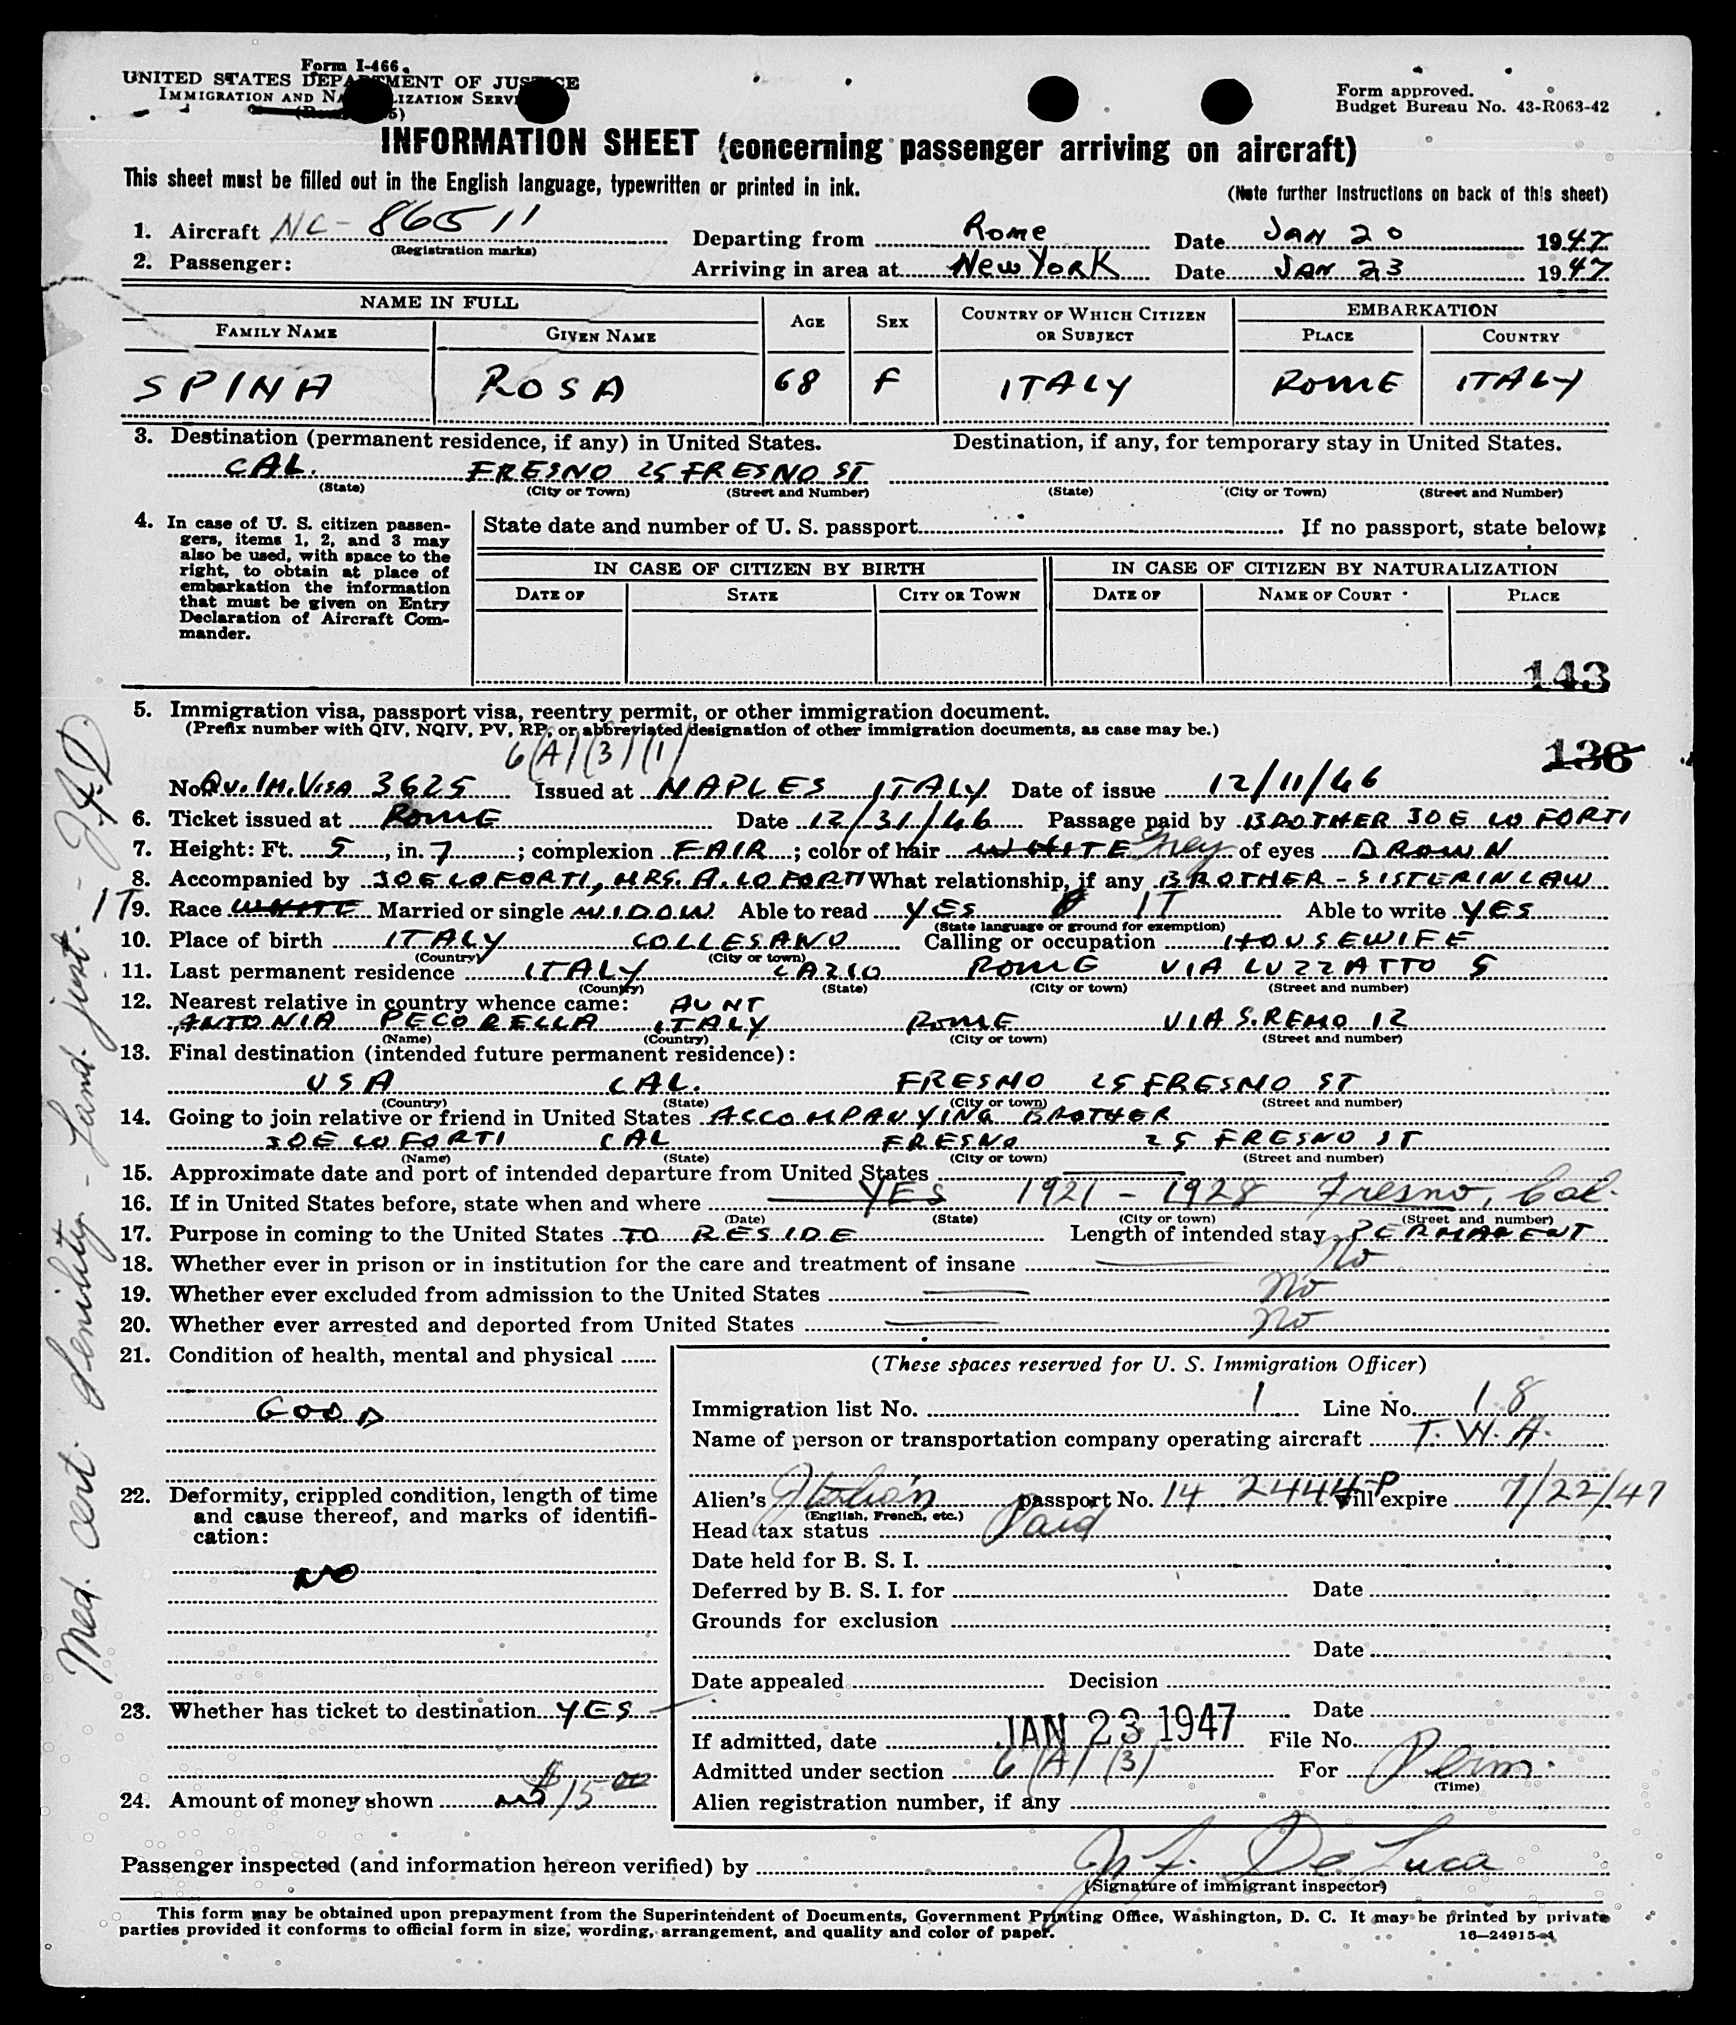 Form I-466
UNITED STATES DEPARTMENT OF JUSTICE
IMMIGRATION AND NATURALIZATION SERVICE
Form approved.
Budget Bureau No. 43-R063-42
INFORMATION SHEET (concerning passenger arriving on aircraft)
This sheet must be filled out in the English language, typewritten or printed in ink.
(Note further instructions on back of this sheet)
1. Aircraft NC-86511 Departing from Rome Date JAN 20 1947
(Registration marks)
2. Passenger: Arriving in area at New York Date JAN 23 1947
NAME IN FULL AGE SEX COUNTRY OF WHICH CITIZEN OR SUBJECT EMBARKATION
FAMILY NAME GIVEN NAME PLACE COUNTRY
SPINA ROSA 68 F ITALY ROME ITALY
3. Destination (permanent residence, if any) in United States. Destination, if any, for temporary stay in United States.
CAL. FRESNO 25 FRESNO ST
(State) (City or Town) (Street and Number) (State) (City or Town) (Street and Number)
4. In case of U. S. citizen passen-
gers, items 1, 2, and 3 may
also be used, with space to the
right, to obtain at place of
embarkation the information
that must be given on Entry
Declaration of Aircraft Com-
mander.
State date and number of U. S. passport If no passport, state below:
IN CASE OF CITIZEN BY BIRTH IN CASE OF CITIZEN BY NATURALIZATION
DATE OF STATE CITY OR TOWN DATE OF NAME OF COURT PLACE
143
5. Immigration visa, passport visa, reentry permit, or other immigration document.
(Prefix number with QIV, NQIV, PV, RP, or abbreviated designation of other immigration documents, as case may be.)
136
6(A)(3)(1)
No. QU.IM.VISA 3625 Issued at NAPLES ITALY Date of issue 12/11/46
6. Ticket issued at ROME Date 12/31/46 Passage paid by BROTHER JOE LO FORTI
7. Height: Ft. 5, in. 7; complexion FAIR; color of hair WHITE Grey of eyes BROWN
8. Accompanied by JOE LO FORTI, MRS. A. LO FORTI What relationship, if any BROTHER - SISTER IN LAW
IT
9. Race WHITE Married or single WIDOW Able to read YES IT Able to write YES
(State language or ground for exemption)
10. Place of birth ITALY COLLESANO Calling or occupation HOUSEWIFE
(Country) (City or town)
11. Last permanent residence ITALY LAZIO ROME VIA LUZZATTO 5
(Country) (State) (City or town) (Street and number)
12. Nearest relative in country whence came: AUNT
ANTONIA PECORELLA ITALY ROME VIA S. REMO 12
(Name) (Country) (City or town) (Street and number)
13. Final destination (intended future permanent residence):
USA CAL. FRESNO 25 FRESNO ST
(Country) (State) (City or town) (Street and number)
14. Going to join relative or friend in United States ACCOMPANYING BROTHER
JOE LO FORTI CAL FRESNO 25 FRESNO ST
(Name) (State) (City or town) (Street and number)
15. Approximate date and port of intended departure from United States
16. If in United States before, state when and where YES 1921 - 1928 Fresno, Cal.
(Date) (State) (City or town) (Street and number)
17. Purpose in coming to the United States TO RESIDE Length of intended stay PERMANENT
18. Whether ever in prison or in institution for the care and treatment of insane No
19. Whether ever excluded from admission to the United States No
20. Whether ever arrested and deported from United States No
21. Condition of health, mental and physical
GOOD
22. Deformity, crippled condition, length of time
and cause thereof, and marks of identifi-
cation:
NO
23. Whether has ticket to destination YES
24. Amount of money shown $15.00
(These spaces reserved for U. S. Immigration Officer)
Immigration list No. 1 Line No. 18
Name of person or transportation company operating aircraft T. W. A.
Alien's Italian passport No. 14 2444-P will expire 7/22/47
(English, French, etc.)
Head tax status Paid
Date held for B. S. I.
Deferred by B. S. I. for Date
Grounds for exclusion
Date
Date appealed Decision
Date
If admitted, date JAN 23 1947 File No.
Admitted under section 6(A)(3) For Perm.
(Time)
Alien registration number, if any
Passenger inspected (and information hereon verified) by De Luca
(Signature of immigrant inspector)
This form may be obtained upon prepayment from the Superintendent of Documents, Government Printing Office, Washington, D. C. It may be printed by private
parties provided it conforms to official form in size, wording, arrangement, and quality and color of paper.
16—24915-1
Med. cert. Senility - Land. just.